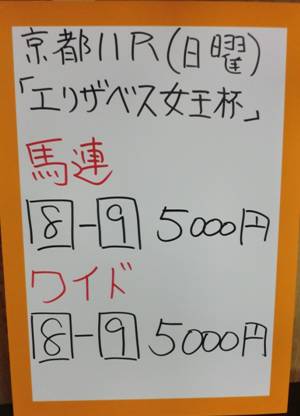 京都11R(日曜)
「エリザベス女王杯」
馬連
8-9 5000円
ワイド
8-9 5000円